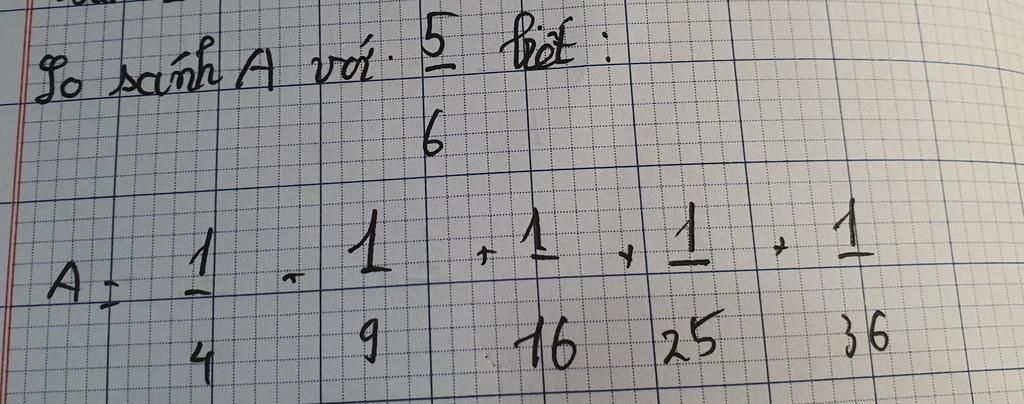 So sánh A với 5/6 biết:
A = 1/4 + 1/9 + 1/16 + 1/25 + 1/36